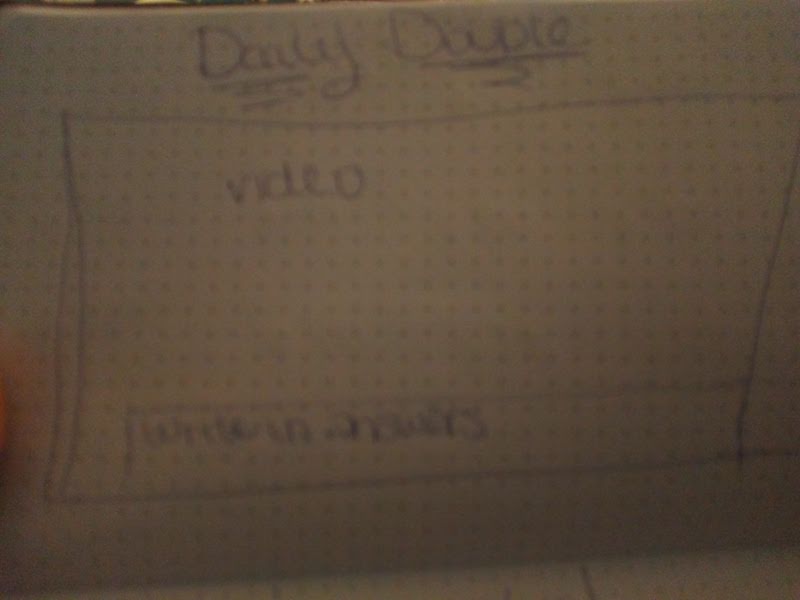 Daily Double
video
write in answers